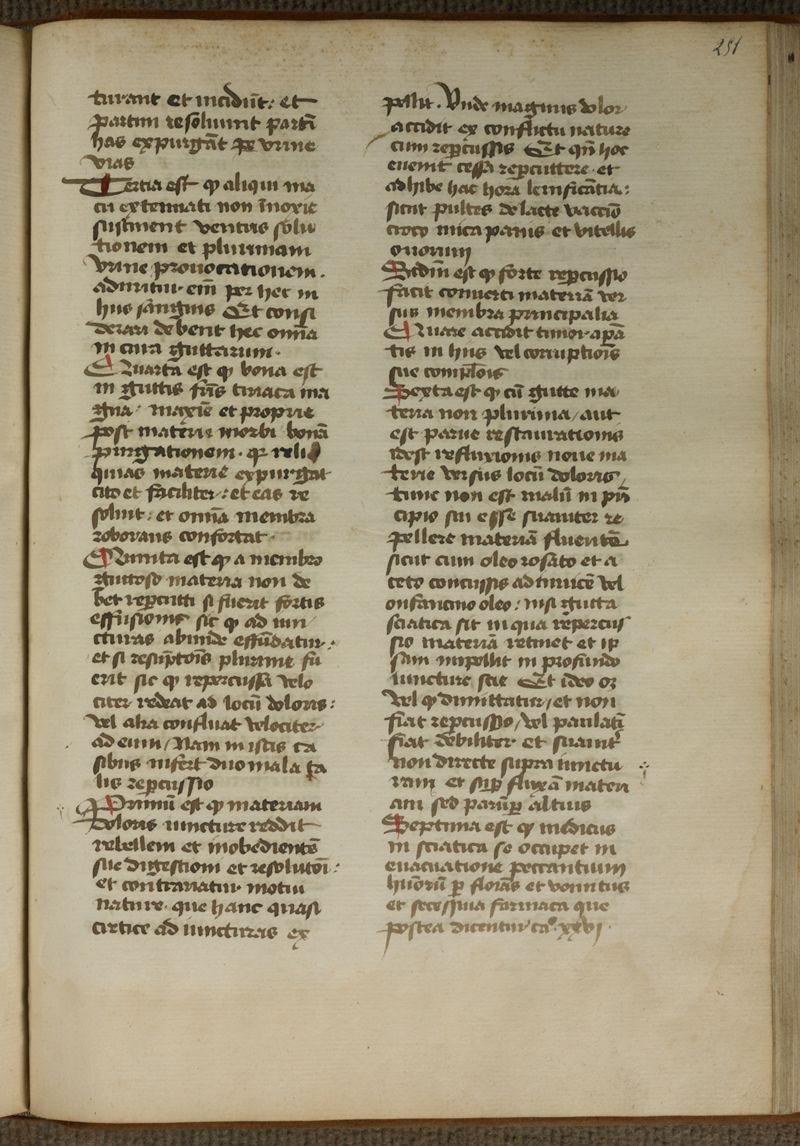 251
turant et incidu͞t: et
partim resoluunt parti͞
has expurga͞t per vrine
vias
Tertia est qꝫ aliqui ma
cu extenuati non in͞oxie
sustinent ventris solu
tionem et plurimam
vrine prouocationem.
adiuritur em͞ per hec in
huius sanginis Et consi
derari debent hec omia͞
in cura guttarum.
Quarta est qꝫ bona est
in guttis tiriaca ma
gna maxi͞e et proprie
post materie morbi bona͞
purgationem. qꝛ reli
quias materie expurgat
cito et faciliter: et eas re
soluit: et omia͞ membra
roborans confortat.
Quinta est qꝫ a membro
guttoso materia non de
bet repercutti si fuerit fortis
effusionis sic qꝫ ad iun
cturas abunde effu͞datur.
et si resu͞ptois͞ plurime fu͞
erit sic qꝫ repercussa velo
citer redeat ad locu͞ doloris:
vel alia confluat velociter
ad eum/ Nam in istis ca
sibus infert duo mala ta
lis repercussio
Primu͞ est qꝫ materiam
doloris iuncture reddit
rebellem et inobediente͞
sue digestioni et resolutoi͞:
et contrariatur motui
nature. que hanc quasi
cirtice ad iuncturas ex
pellit. Vnde maginus dolor
accidit ex conflictu nature
cum repercussis Et qn͞ hoc
euenit cessa repercuttere. et
adhibe hac hora leinifica͞tia:
sicut pultes de lacte vaccio͞
croco mica panis et vitellis
ouorum
Secd͞m est qꝫ forte repercussio
facit conuerti materia͞ ver
sus membra principalia
Quare accidit timor apa͞
tis in hius vel corruptiois͞
sue complois͞
Sexta est qꝫ cu͞ gutte ma
teria non plurima/ aut
est parue restaurationis
idest refluxionis noue ma
terie versus locu͞ doloris/
tunc non est malu͞ in pn͞
cipio sui esse͞ suauiter re
pellere materia͞ fluente͞
sicut cum oleo rosato et a
ceto concussis ad inuice͞ vel
onfancino oleo: nisi gutta
sciatica sit in qua repercus
sio materia͞ retinet et ip
sam impellit in profundo
iuncture scie Et ideo oꝫ
vel qꝫ dimittatur/ et non
fiat repercussio/ vel paulati͞
fiat debiliter et suauit͛
non directe supra iunctu
ram et sup͛ fluxa͞ materi
am sed paru͞p͛ altius
Septima est qꝫ medicus
in sciatica se occupet in
euacuatione peccantium
humoru͞ p͛ et vomitus
et secessiua farmaca que
postea dicentur ca°. xxvj.